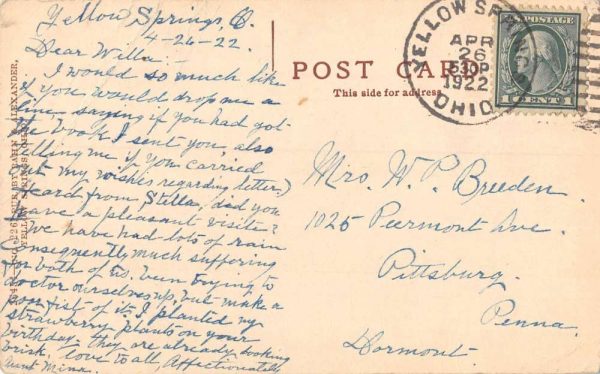 Yellow Springs, O.
4-26-22.
Dear Willa:
I would so much like
if you would drop me a
line, saying if you had got
the book I sent you, also
telling me if you carried
out my wishes regarding letter,
heard from Stella, did you
have a pleasant visit?
We have had lots of rain
Consequently much suffering
for both of us. been trying to
doctor ourselves up, but make a
poor fist of it. I planted my
strawberry plants on your
birthday. they are already looking
brisk. love to all, Affectionately
Aunt Minn.
POST CARD
This side for address
YELLOW SPRINGS
APR
26
1922
OHIO
POSTAGE
1 CENT 1
Mrs. W. P. Breeden.
1025 Peermont Ave.
Pittsburg.
Penna.
Dormont.
ALEXANDER,
YELLOW SPRINGS, OHIO